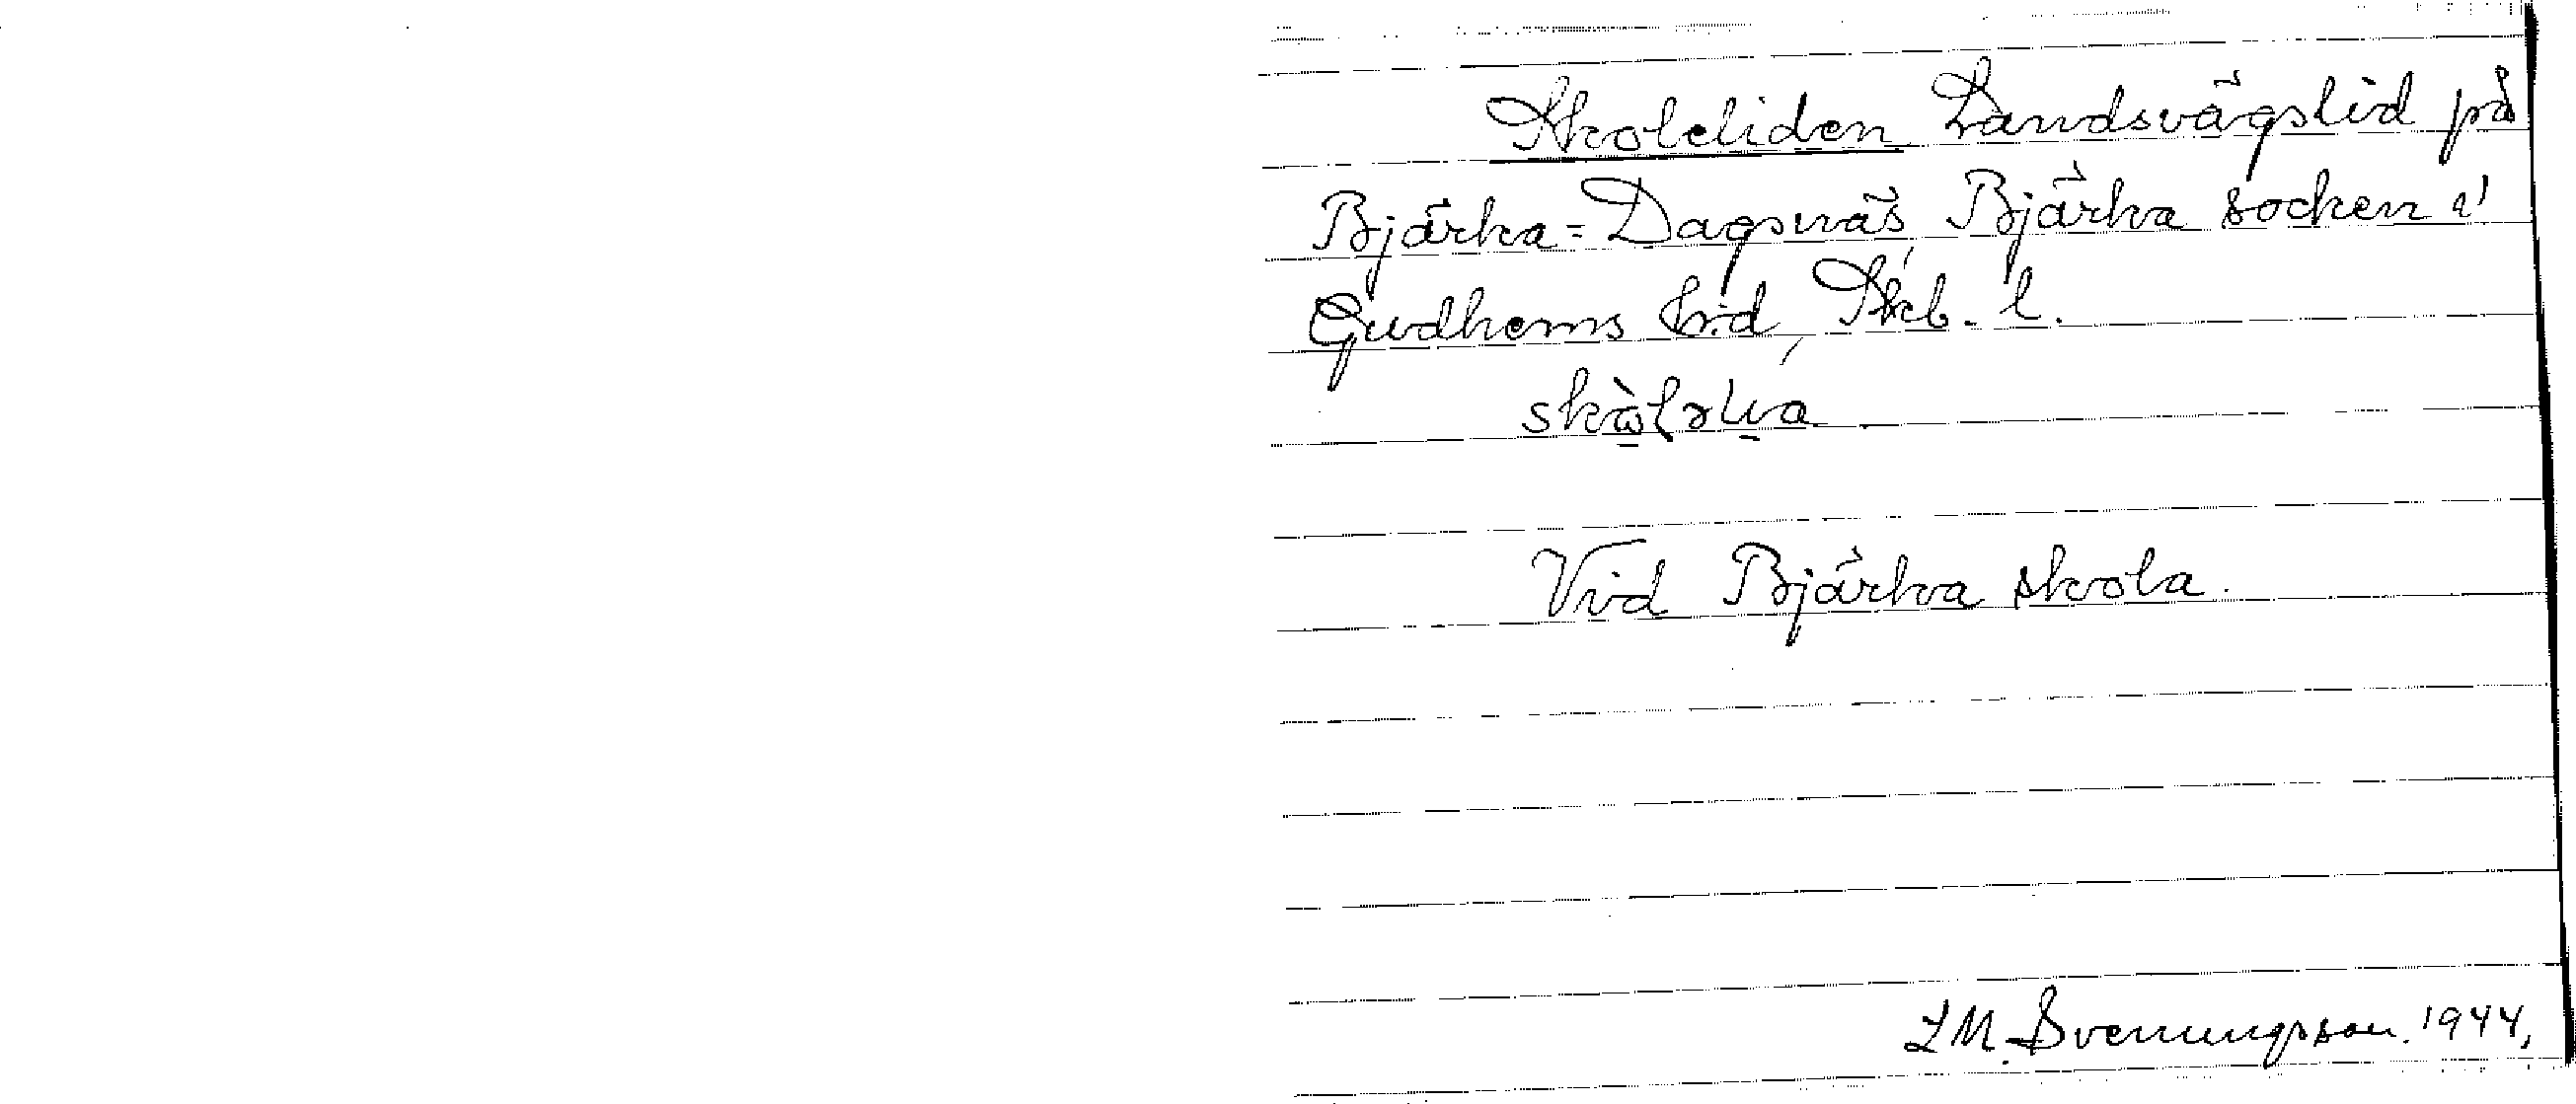 Skoleliden Landsvägslid på
Bjärka=Dagsnäs, Bjärka socken i
Gudhems hrd, Skb. l.
Vid Bjärka skola.
L M. Svenungsson. 1944,